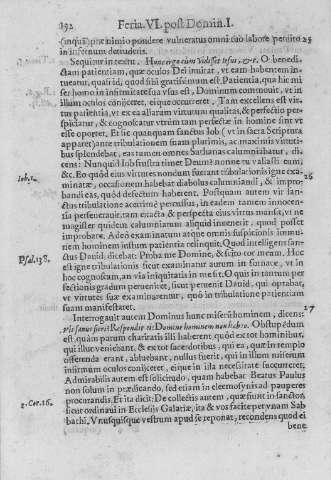 192 Feria. VI. post Domin. I.
(inquit) præ nimio pondere vulneratus omni cum labore penitùs 25
in infernum detruderis.
Sequitur in textu. Hunc ergo cum vidisset Iesus, &c. O benedi-
ctam patientiam, quæ oculos Dei inuitat, vt eam habentem in-
tueatur, quasi id, quod sibi gratissimum est. Patientia, qua hic mi
ser homo in infirmitate sua vsus est, Dominum commouit, vt in
illum oculos conijceret, eique occurreret. Tam excellens est vir-
tus patientia, vt ex ea aliarum virtutum qualitas, & perfectio per-
spiciatur, & cognoscatur vtrum tam perfectæ in homine sint vt
esse oportet. Et sic quanquam sanctus Iob (vt in sacra Scriptura
apparet) ante tribulationem suam plurimis, ac maximis virtuti-
bus splendebat, eas tamen omnes barbarus calumniabatur, di-
cens: Nunquid Iob frustra timet Deum? nonne tu vallasti eum;
Iob. 1. &c. Eo quòd eius virtutes nondum fuerant tribulationis igne exa- 26
minatæ, occasionem habebat diabolus calumniandi, & impro-
bandi eas, quòd defectum haberent. Postquam autem vir san-
ctus tribulatione acerrimè percussus, in eadem tamen innocen-
tia perseuerauit, tam exacta & perspecta eius virtus mansit, vt ne
magister quidem calumniarum aliquid inuenerit, quod posset
improbare. Adeò examinatum atque omnis suspitionis immu-
tem hominem insitum patientia relinquit. Quod intelligens san-
Psal. 138. ctus Dauid, dicebat: Proba me Domine, & scito cor meum. Hoc
est igne tribulationis sicut examinatur aurum in fornace, vt in
hoc cognoscam, an via iniquitatis in me sit. O quis in tantum per
fectionis gradum peruenisset, sicut peruenit Dauid, qui optabat,
vt virtutes suæ examinarentur, quò in tribulatione patientiam
suam manifestaret.
Interrogauit autem Dominus hunc miserū hominem, dicens: 27
vis sanus fieri? Respondit ei: Domine hominem non habeo. Obstupēdum
est, quàm parum charitatis illi haberent, quòd ex tot hominibus,
qui illuc veniebant, & ex tot sacerdotibus, qui ea, quæ in templo
offerenda erant, abluebant, nullus fuerit, qui in illum miserum
infirmum oculos conijceret, eique in illa necessitate succurreret.
Admirabilis autem est solicitudo, quam habebat Beatus Paulus
non solum in prædicando, sed etiam in eleemosynis ad pauperes
1. Cor. 16. procurandis. Et ita dicit: De collectis autem, quæ fiunt in sanctos,
sicut ordinaui in Ecclesiis Galatiæ, ita & vos facite per vnam Sab
bathi. Vnusquisque vestrum apud se reponat, recondens quod ei
bene